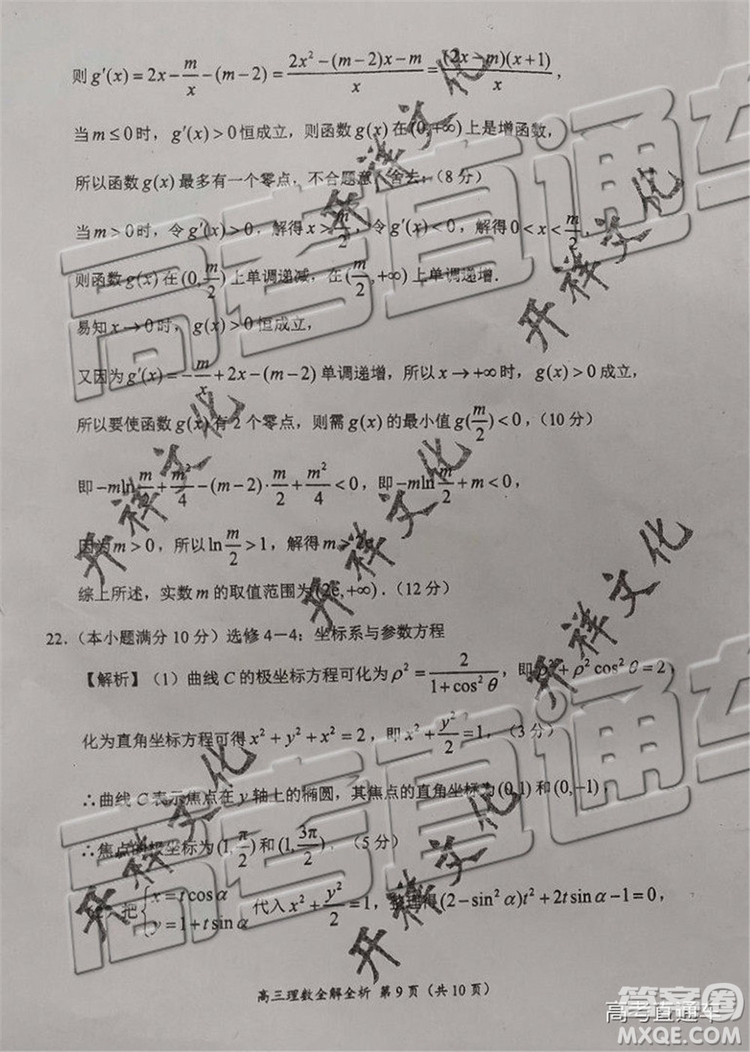 则 g′(x) = 2x − m/x − (m−2) = (2x² − (m−2)x − m)/x = (2x − m)(x+1)/x，
当 m ≤ 0 时，g′(x) > 0 恒成立，则函数 g(x) 在 (0,+∞) 上是增函数，
所以函数 g(x) 最多有一个零点，不合题意，舍去；（8 分）
当 m > 0 时，令 g′(x) > 0，解得 x > m/2，令 g′(x) < 0，解得 0 < x < m/2，
则函数 g(x) 在 (0, m/2) 上单调递减，在 (m/2, +∞) 上单调递增．
易知 x → 0 时，g(x) > 0 恒成立，
又因为 g′(x) = −m/x + 2x − (m−2) 单调递增，所以 x → +∞ 时，g(x) > 0 成立，
所以要使函数 g(x) 有 2 个零点，则需 g(x) 的最小值 g(m/2) < 0，（10 分）
即 −m ln m/2 + m²/4 − (m−2)·m/2 + m²/4 < 0，即 −m ln m/2 + m < 0，
因为 m > 0，所以 ln m/2 > 1，解得 m > 2e，
综上所述，实数 m 的取值范围为 (2e, +∞)．（12 分）
22．（本小题满分 10 分）选修 4－4：坐标系与参数方程
【解析】（1）曲线 C 的极坐标方程可化为 ρ² = 2/(1+cos²θ)，即 ρ² + ρ²cos²θ = 2，
化为直角坐标方程可得 x² + y² + x² = 2，即 x² + y²/2 = 1，（3 分）
∴曲线 C 表示焦点在 y 轴上的椭圆，其焦点的直角坐标为 (0,1) 和 (0,−1)，
∴焦点的极坐标为 (1, π/2) 和 (1, 3π/2)．（5 分）
把 {x = t cos α, y = 1 + t sin α 代入 x² + y²/2 = 1，整理得 (2 − sin²α)t² + 2t sin α − 1 = 0，
高三理数全解全析 第 9 页（共 10 页）
高考直通车
高考直通车
开祥文化
开祥文化
开祥文化
开祥文化
开祥文化
开祥文化
开祥文化
高考直通车
答案圈
MXQE.COM